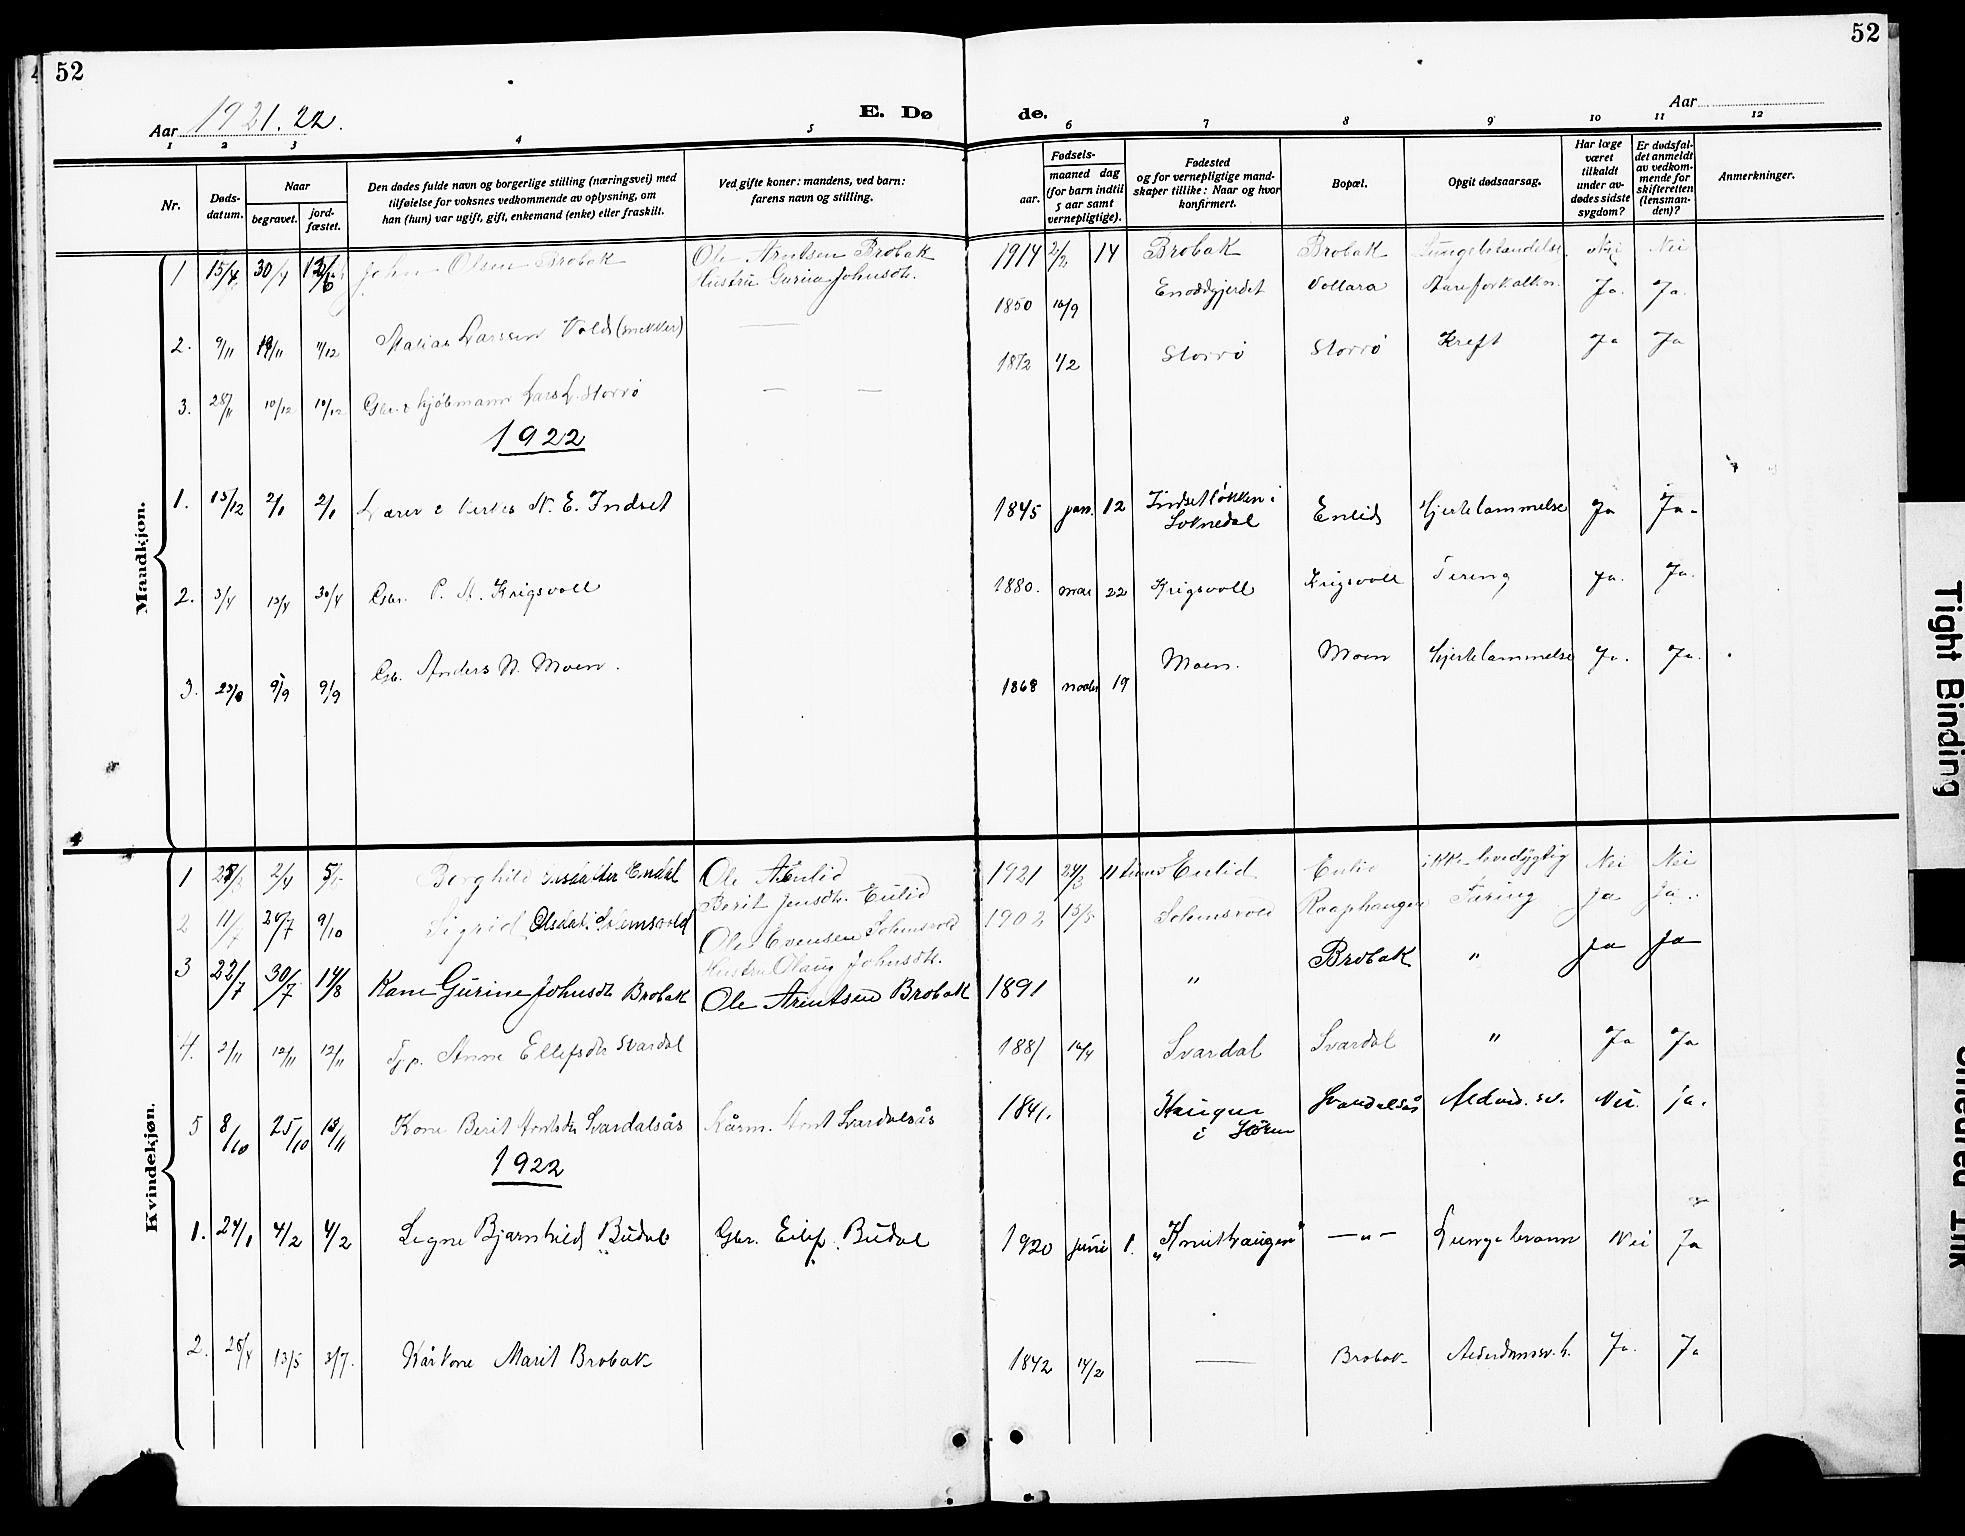 52
52
Aar 1921.22.
E. Dø
de.
Aar
1 2 3 4 5 6 7 8 9 10 11 12
Nr.
Døds-
datum.
Naar
begravet.
jord-
fæstet.
Den dødes fulde navn og borgerlige stilling (næringsvei) med
tilføielse for voksnes vedkommende av oplysning, om
han (hun) var ugift, gift, enkemand (enke) eller fraskilt.
Ved gifte koner: mandens, ved barn:
farens navn og stilling.
Fødsels-
aar.
maaned dag
(for barn indtil
5 aar samt
vernepligtige).
Fødested
og for vernepligtige mand-
skaper tillike: Naar og hvor
konfirmert.
Bopæl.
Opgit dødsaarsag.
Har læge
været
tilkaldt
under av-
dødes sidste
sygdom?
Er dødsfal-
det anmeldt
av vedkom-
mende for
skifteretten
(lensman-
den)?
Anmerkninger.
Mandkjøn.
1 15/4 30/4 John Olsen Brobak Ole Arntsen Brobak 1914 2/2 14 Brobak Brobak Nei Nei
Hustru Gurina Johnsdt.
2. 9/11 19/11 11/12 Larsen Vold (snekker) — 1850 16/9 Enoddgjerdet Vollara Aareforkalkn. Ja. Ja.
3. 28/11 10/12 10/12 Gbr. & kjøbmann Lars L. Storrø — — 1872 1/2 Storrø Storrø Kreft Ja Ja
1922
1. 13/12 2/1 2/1 Lærer & N. E. Indset 1845 jan. 12 Indsetløkken i Enlid Hjertelammelse Ja Ja.
Soknedal
2. 3/4 13/4 30/4 Gbr. P. A. Krigsvoll 1880. mai 22 Krigsvoll Krigsvoll Tering Ja. Ja.
3. 29/8 9/9 9/9 Gbr. Anders N. Moen. 1868 novbr 19 Moen. Moen Hjertelammelse Ja. Ja.
Kvindekjøn.
1 2/4 Borghild Endal Ole A. Enlid 1921 24/3 11 Enlid Enlid ikke levedygtig Nei Nei
Berit Jensdt. Enlid
2 11/7 20/7 9/10 Sigrid Olsdat. Solemsvold Ole Evensen Solemsvold 1902 13/5 Solemsvold Raaphaugen Tæring Ja Ja.
Hustru Olaug Johnsdt.
3 22/7 30/7 14/8 Kone Gurine Johnsdt Brobak Ole Arentsen Brobak 1891 " Brobak " Ja Ja
4. 2/11 12/11 12/11 Anne Ellefsdtr Svardal 1881 16/4 Svardal Svardal " Ja Ja
5 8/10 25/10 13/11 Kone Berit Arntsdtr Svardalsås Kårm. Arnt Svardalsås 1841. Haugen Svardalsås Alderd. sv. Nei. ja.
i Støren
1922
1. 24/1 4/2 4/2 Signe Bjarnhild Budal Gbr. Eilif Budal 1920 juni 1. "Knuthaugen" —"— Lungebrann Nei Ja
2. 25/4 13/5 3/7. Kårkone Marit Brobak 1842 14/2 — Brobak Alderdomssv.h. Ja. Ja
Tight Binding
Smeared Ink